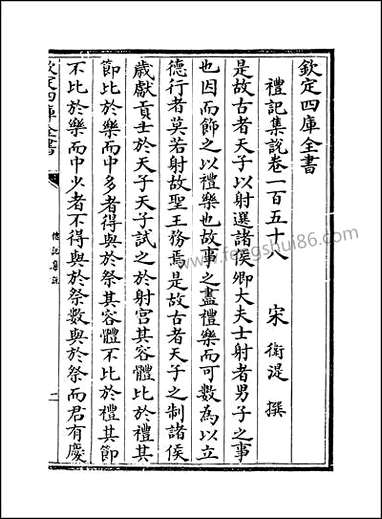 欽定四庫全書
禮記集說卷一百五十八 宋 衛湜 撰
是故古者天子以射選諸侯卿大夫士射者男子之事
也因而飾之以禮樂也故事之盡禮樂而可數為以立
德行者莫若射故聖王務焉是故古者天子之制諸侯
歲獻貢士於天子天子試之於射宮其容體比於禮其
節比於樂而中多者得與於祭其容體不比於禮其節
不比於樂而中少者不得與於祭數與於祭而君有慶
欽定四庫全書
禮記集說
www.fengshui86.com